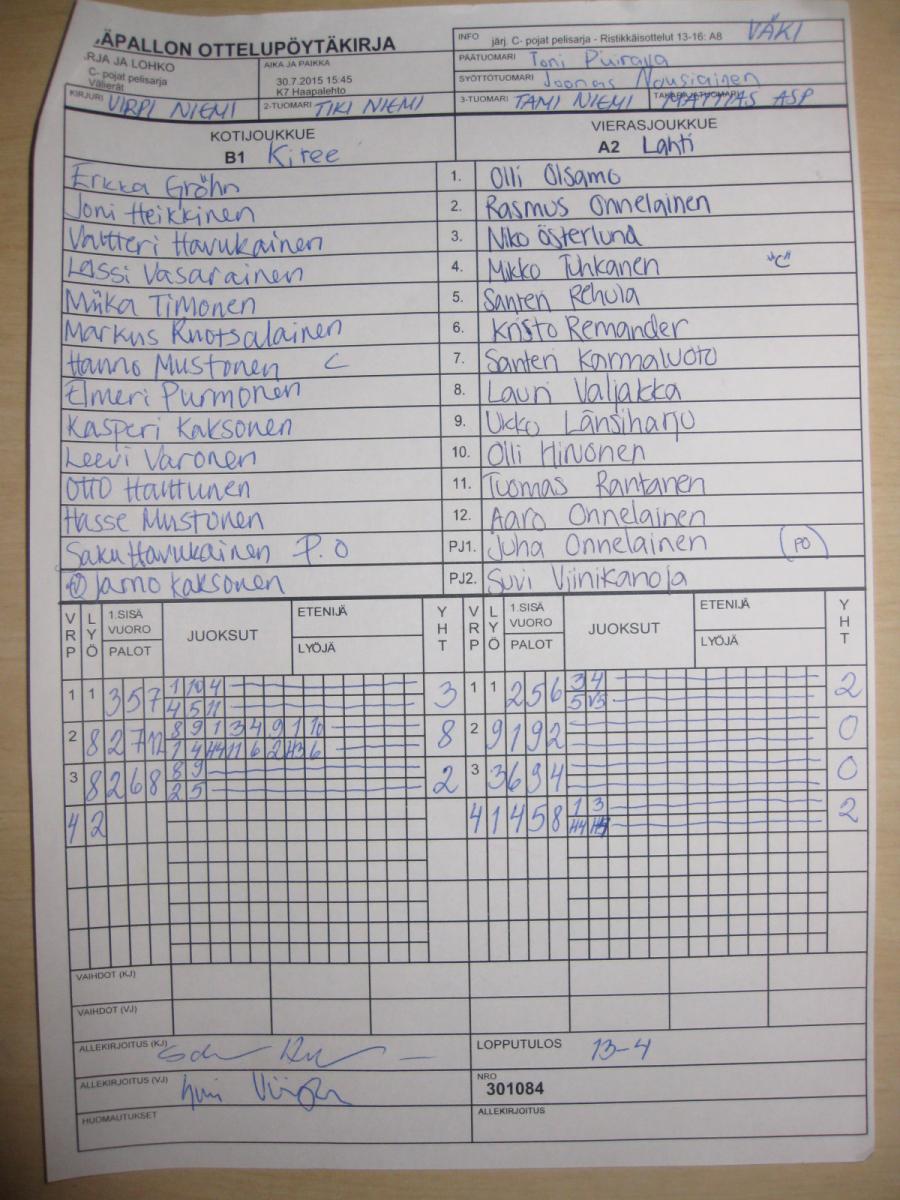 ÄPALLON OTTELUPÖYTÄKIRJA
INFO järj. C- pojat pelisarja - Ristikkäisottelut 13-16: A8 VÄKI
RJA JA LOHKO
C- pojat pelisarja
Välierät
AIKA JA PAIKKA
30.7.2015 15:45
K7 Haapalehto
PÄÄTUOMARI Toni Puraya
SYÖTTÖTUOMARI Joonas Nousiainen
KIRJURI VIRPI NIEMI 2-TUOMARI TIKI NIEMI 3-TUOMARI TAMI NIEMI TAKARAJATUOMARI MATTIAS ASP
KOTIJOUKKUE VIERASJOUKKUE
B1 Kitee A2 Lahti
Erkka Gröhn 1. Olli Olsamo
Joni Heikkinen 2. Rasmus Onnelainen
Valtteri Havukainen 3. Niko Österlund
Lassi Vasarainen 4. Mikko Tuhkanen "C"
Miika Timonen 5. Santeri Rehula
Markus Ruotsalainen 6. Kristo Remander
Hannu Mustonen C 7. Santeri Karmaluoto
Elmeri Purmonen 8. Lauri Valjakka
Kasperi Kaksonen 9. Ukko Länsiharju
Leevi Varonen 10. Olli Hirvonen
Otto Halttunen 11. Tuomas Rantanen
Hasse Mustonen 12. Aaro Onnelainen
Saku Havukainen P.O PJ1. Juha Onnelainen (PO)
Jarno Kaksonen PJ2. Suvi Viinikanoja
VRP LYÖ 1.SISÄ VUORO PALOT JUOKSUT ETENIJÄ LYÖJÄ YHT VRP LYÖ 1.SISÄ VUORO PALOT JUOKSUT ETENIJÄ LYÖJÄ YHT
1 1 3 5 7 1 10 4 3 1 1 2 5 6 3 4 2
4 5 11 5
2 8 2 7 12 8 9 1 3 4 9 1 10 8 2 9 1 9 2 0
3 8 2 6 8 8 9 2 3 3 6 9 4 0
2 5
4 2 4 1 4 5 8 1 3 2
VAIHDOT (KJ)
VAIHDOT (VJ)
ALLEKIRJOITUS (KJ) LOPPUTULOS 13-4
ALLEKIRJOITUS (VJ) NRO
301084
HUOMAUTUKSET ALLEKIRJOITUS